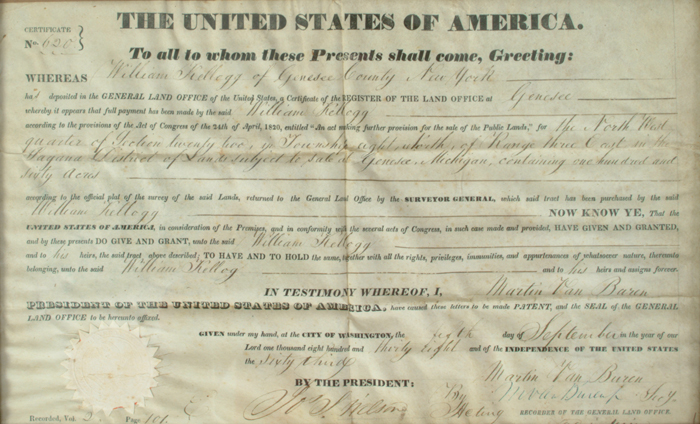 THE UNITED STATES OF AMERICA.
CERTIFICATE
No. 620
To all to whom these Presents shall come, Greeting:
WHEREAS William Kellogg of Genesee County New York
has deposited in the GENERAL LAND OFFICE of the United States, a Certificate of the REGISTER OF THE LAND OFFICE at Genesee
whereby it appears that full payment has been made by the said William Kellogg
according to the provisions of the Act of Congress of the 24th of April, 1820, entitled "An act making further provision for the sale of the Public Lands," for the North West
quarter of Section twenty two, in Township eight North, of Range three East in the
District of Lands subject to sale at Genesee, Michigan, containing one hundred and
sixty acres
according to the official plat of the survey of the said Lands, returned to the General Land Office by the SURVEYOR GENERAL, which said tract has been purchased by the said
William Kellogg NOW KNOW YE, That the
UNITED STATES OF AMERICA, in consideration of the Premises, and in conformity with the several acts of Congress, in such case made and provided, HAVE GIVEN AND GRANTED,
and by these presents DO GIVE AND GRANT, unto the said William Kellogg
and to his heirs, the said tract above described; TO HAVE AND TO HOLD the same, together with all the rights, privileges, immunities, and appurtenances of whatsoever nature, thereunto
belonging, unto the said William Kellogg and to his heirs and assigns forever.
IN TESTIMONY WHEREOF, I, Martin Van Buren
PRESIDENT OF THE UNITED STATES OF AMERICA, have caused these letters to be made PATENT, and the SEAL of the GENERAL
LAND OFFICE to be hereunto affixed.
GIVEN under my hand, at the CITY OF WASHINGTON, the day of September in the year of our
Lord one thousand eight hundred and thirty eight and of the INDEPENDENCE OF THE UNITED STATES
the sixty third
BY THE PRESIDENT: Martin Van Buren
By Secy.
RECORDER OF THE GENERAL LAND OFFICE.
Recorded, Vol. 2 Page 101